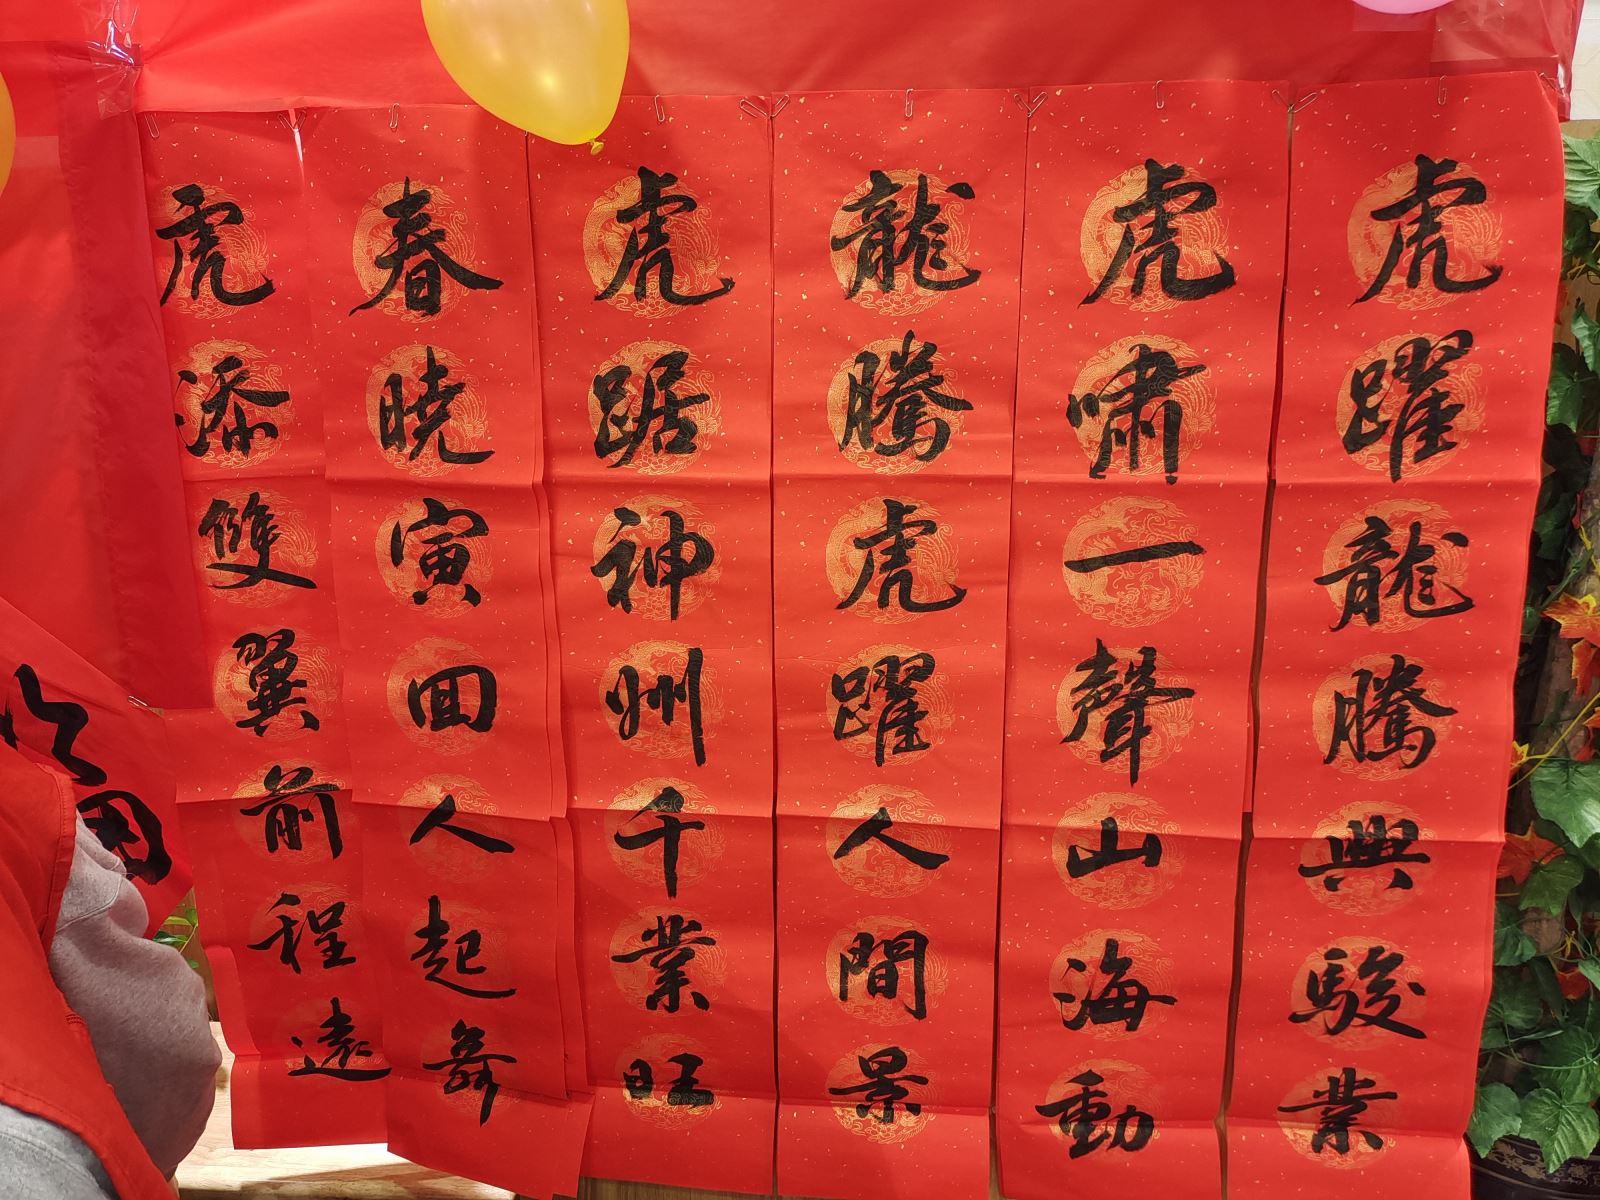 虎躍龍騰興駿業
虎嘯一聲山海動
龍騰虎躍人間景
虎踞神州千業旺
春晓寅回人起舞
虎添雙翼前程遠